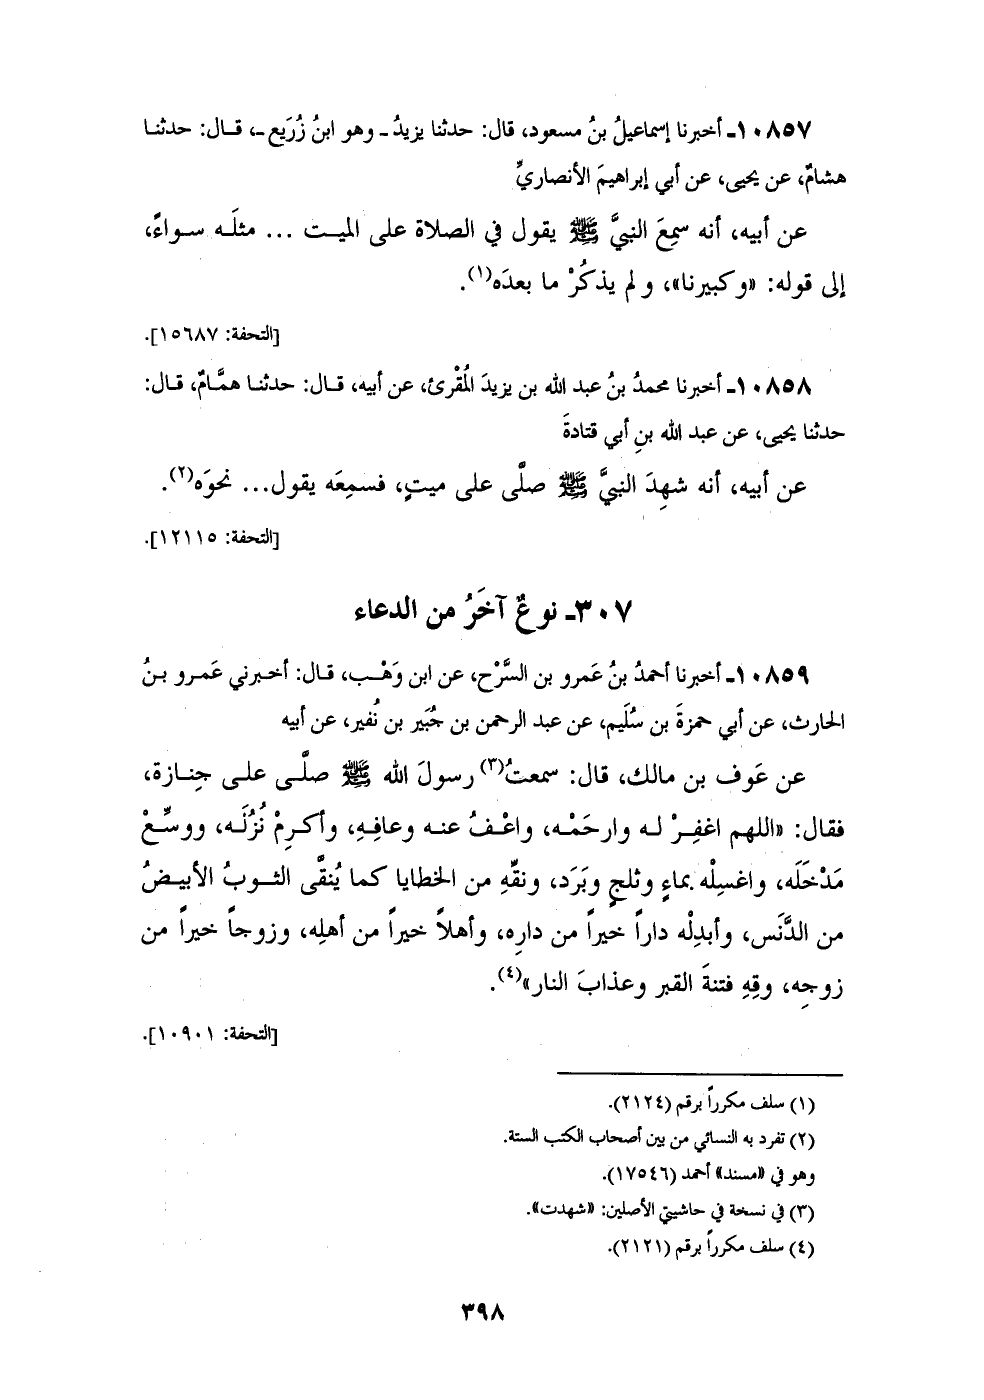 ١٠٨٥٧ـ أخبرنا إسماعيلُ بنُ مسعود، قال: حدثنا يزيدُ ـ وهو ابنُ زُرَيع ـ، قال: حدثنا
هشامٌ، عن يحيى، عن أبي إبراهيمَ الأنصاريِّ
عن أبيه، أنه سمِعَ النبيَّ ﷺ يقول في الصلاة على الميت ... مثلَه سواءً،
إلى قوله: «وكبيرنا»، ولم يذكُرْ ما بعدَه(١).
[التحفة: ١٥٦٨٧].
١٠٨٥٨ـ أخبرنا محمدُ بنُ عبد الله بن يزيدَ المُقْرئ، عن أبيه، قال: حدثنا همَّامٌ، قال:
حدثنا يحيى، عن عبد الله بنِ أبي قتادةَ
عن أبيه، أنه شهِدَ النبيَّ ﷺ صلَّى على ميتٍ، فسمِعَه يقول... نحوَه(٢).
[التحفة: ١٢١١٥].
٣٠٧ـ نوعٌ آخَرُ من الدعاء
١٠٨٥٩ـ أخبرنا أحمدُ بنُ عَمرو بن السَّرْح، عن ابن وَهْب، قال: أخبرني عَمرو بنُ
الحارث، عن أبي حمزةَ بن سُلَيم، عن عبد الرحمن بن جُبَير بن نُفير، عن أبيه
عن عَوف بن مالك، قال: سمعتُ(٣) رسولَ الله ﷺ صلَّى على جِنازة،
فقال: «اللهم اغفِرْ له وارحَمْه، واعْفُ عنه وعافِهِ، وأكرِمْ نُزُلَه، ووسِّعْ
مَدْخَلَه، واغسِلْه بماءٍ وثلجٍ وبَرَد، ونقِّهِ من الخطايا كما يُنقَّى الثوبُ الأبيضُ
من الدَّنَس، وأبدِلْه داراً خيراً من دارِه، وأهلاً خيراً من أهلِه، وزوجاً خيراً من
زوجِه، وقِهِ فتنةَ القبر وعذابَ النار»(٤).
[التحفة: ١٠٩٠١].
(١) سلف مكرراً برقم (٢١٢٤).
(٢) تفرد به النسائي من بين أصحاب الكتب الستة.
وهو في «مسند» أحمد (١٧٥٤٦).
(٣) في نسخة في حاشيتي الأصلين: «شهدت».
(٤) سلف مكرراً برقم (٢١٢١).
٣٩٨